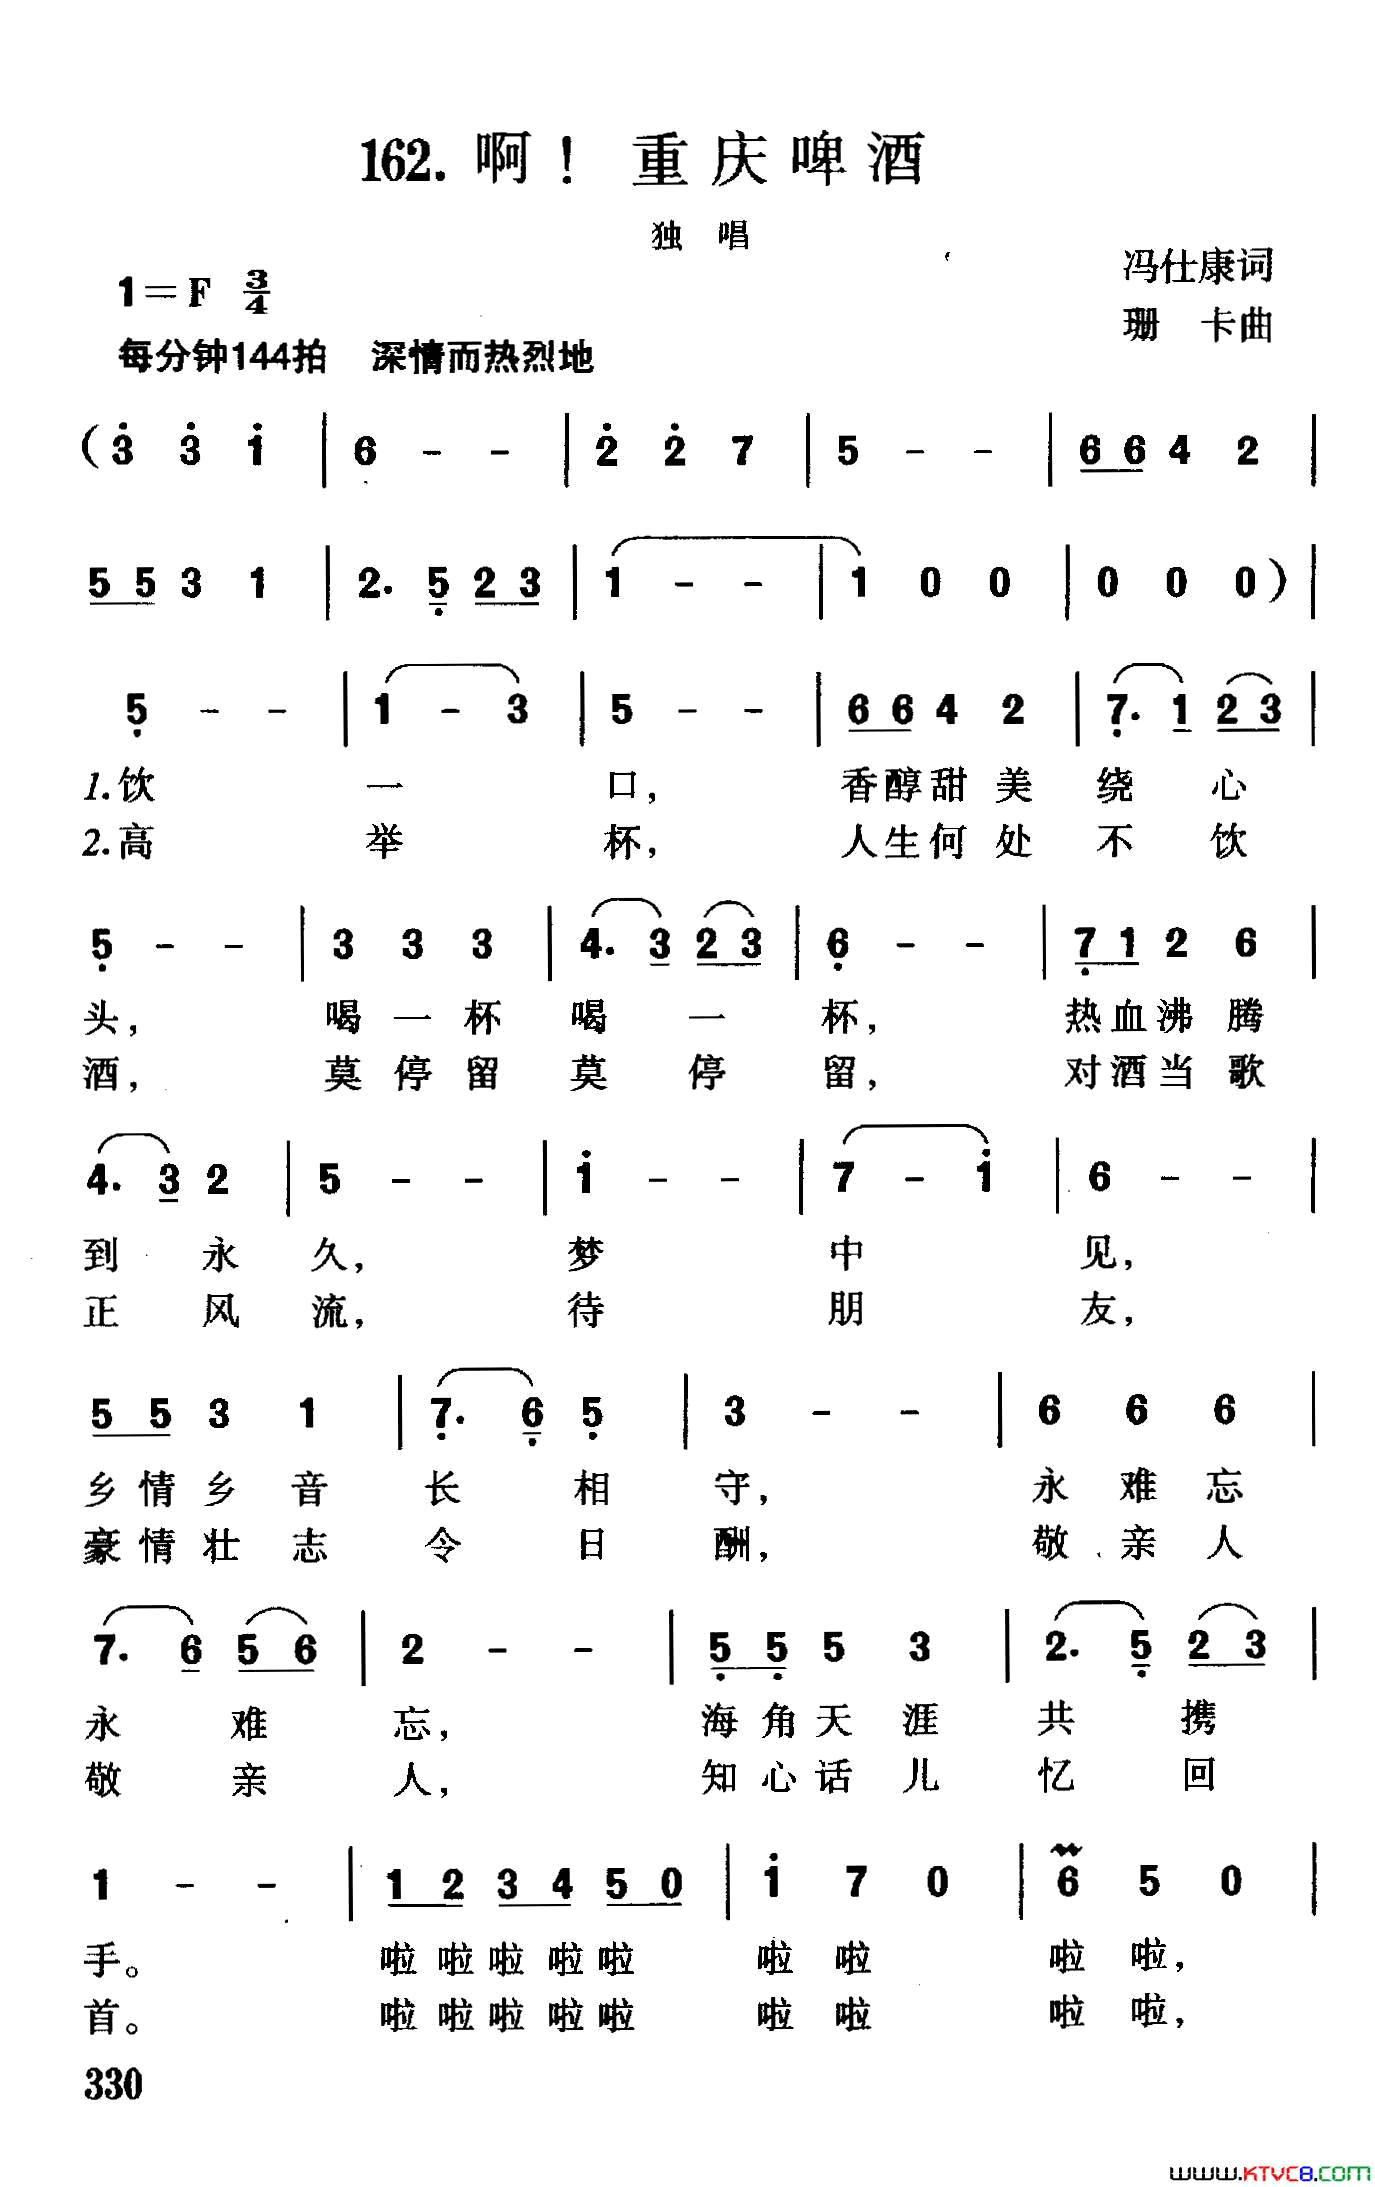 162. 啊！ 重庆啤酒
独 唱
冯仕康词
1=F 3/4
珊 卡曲
每分钟144拍 深情而热烈地
(3̇ 3̇ 1̇ | 6 - - | 2̇ 2̇ 7 | 5 - - | 6 6 4 2 |
5 5 3 1 | 2. 5̣ 2 3 | 1 - - | 1 0 0 | 0 0 0) |
5̣ - - | 1 - 3 | 5 - - | 6 6 4 2 | 7̣. 1 2 3 |
1.饮 一 口, 香醇甜 美 绕 心
2.高 举 杯, 人生何 处 不 饮
5̣ - - | 3 3 3 | 4. 3 2 3 | 6̣ - - | 7̣ 1 2 6 |
头, 喝 一 杯 喝 一 杯, 热血沸 腾
酒, 莫 停 留 莫 停 留, 对酒当 歌
4. 3 2 | 5 - - | 1̇ - - | 7 - 1̇ | 6 - - |
到 永 久, 梦 中 见,
正 风 流, 待 朋 友,
5 5 3 1 | 7̣. 6̣ 5̣ | 3 - - | 6 6 6 |
乡情乡 音 长 相 守, 永 难 忘
豪情壮 志 令 日 酬, 敬 亲 人
7. 6 5 6 | 2 - - | 5̣ 5̣ 5 3 | 2. 5̣ 2 3 |
永 难 忘, 海角天 涯 共 携
敬 亲 人, 知心话 儿 忆 回
1 - - | 1 2 3 4 5 0 | 1̇ 7 0 | 6 5 0 |
手。 啦啦啦啦啦 啦 啦 啦 啦,
首。 啦啦啦啦啦 啦 啦 啦 啦,
330
www.KTVC8.com